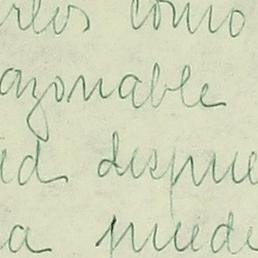 rlos como
azonable
ed despue
a puede